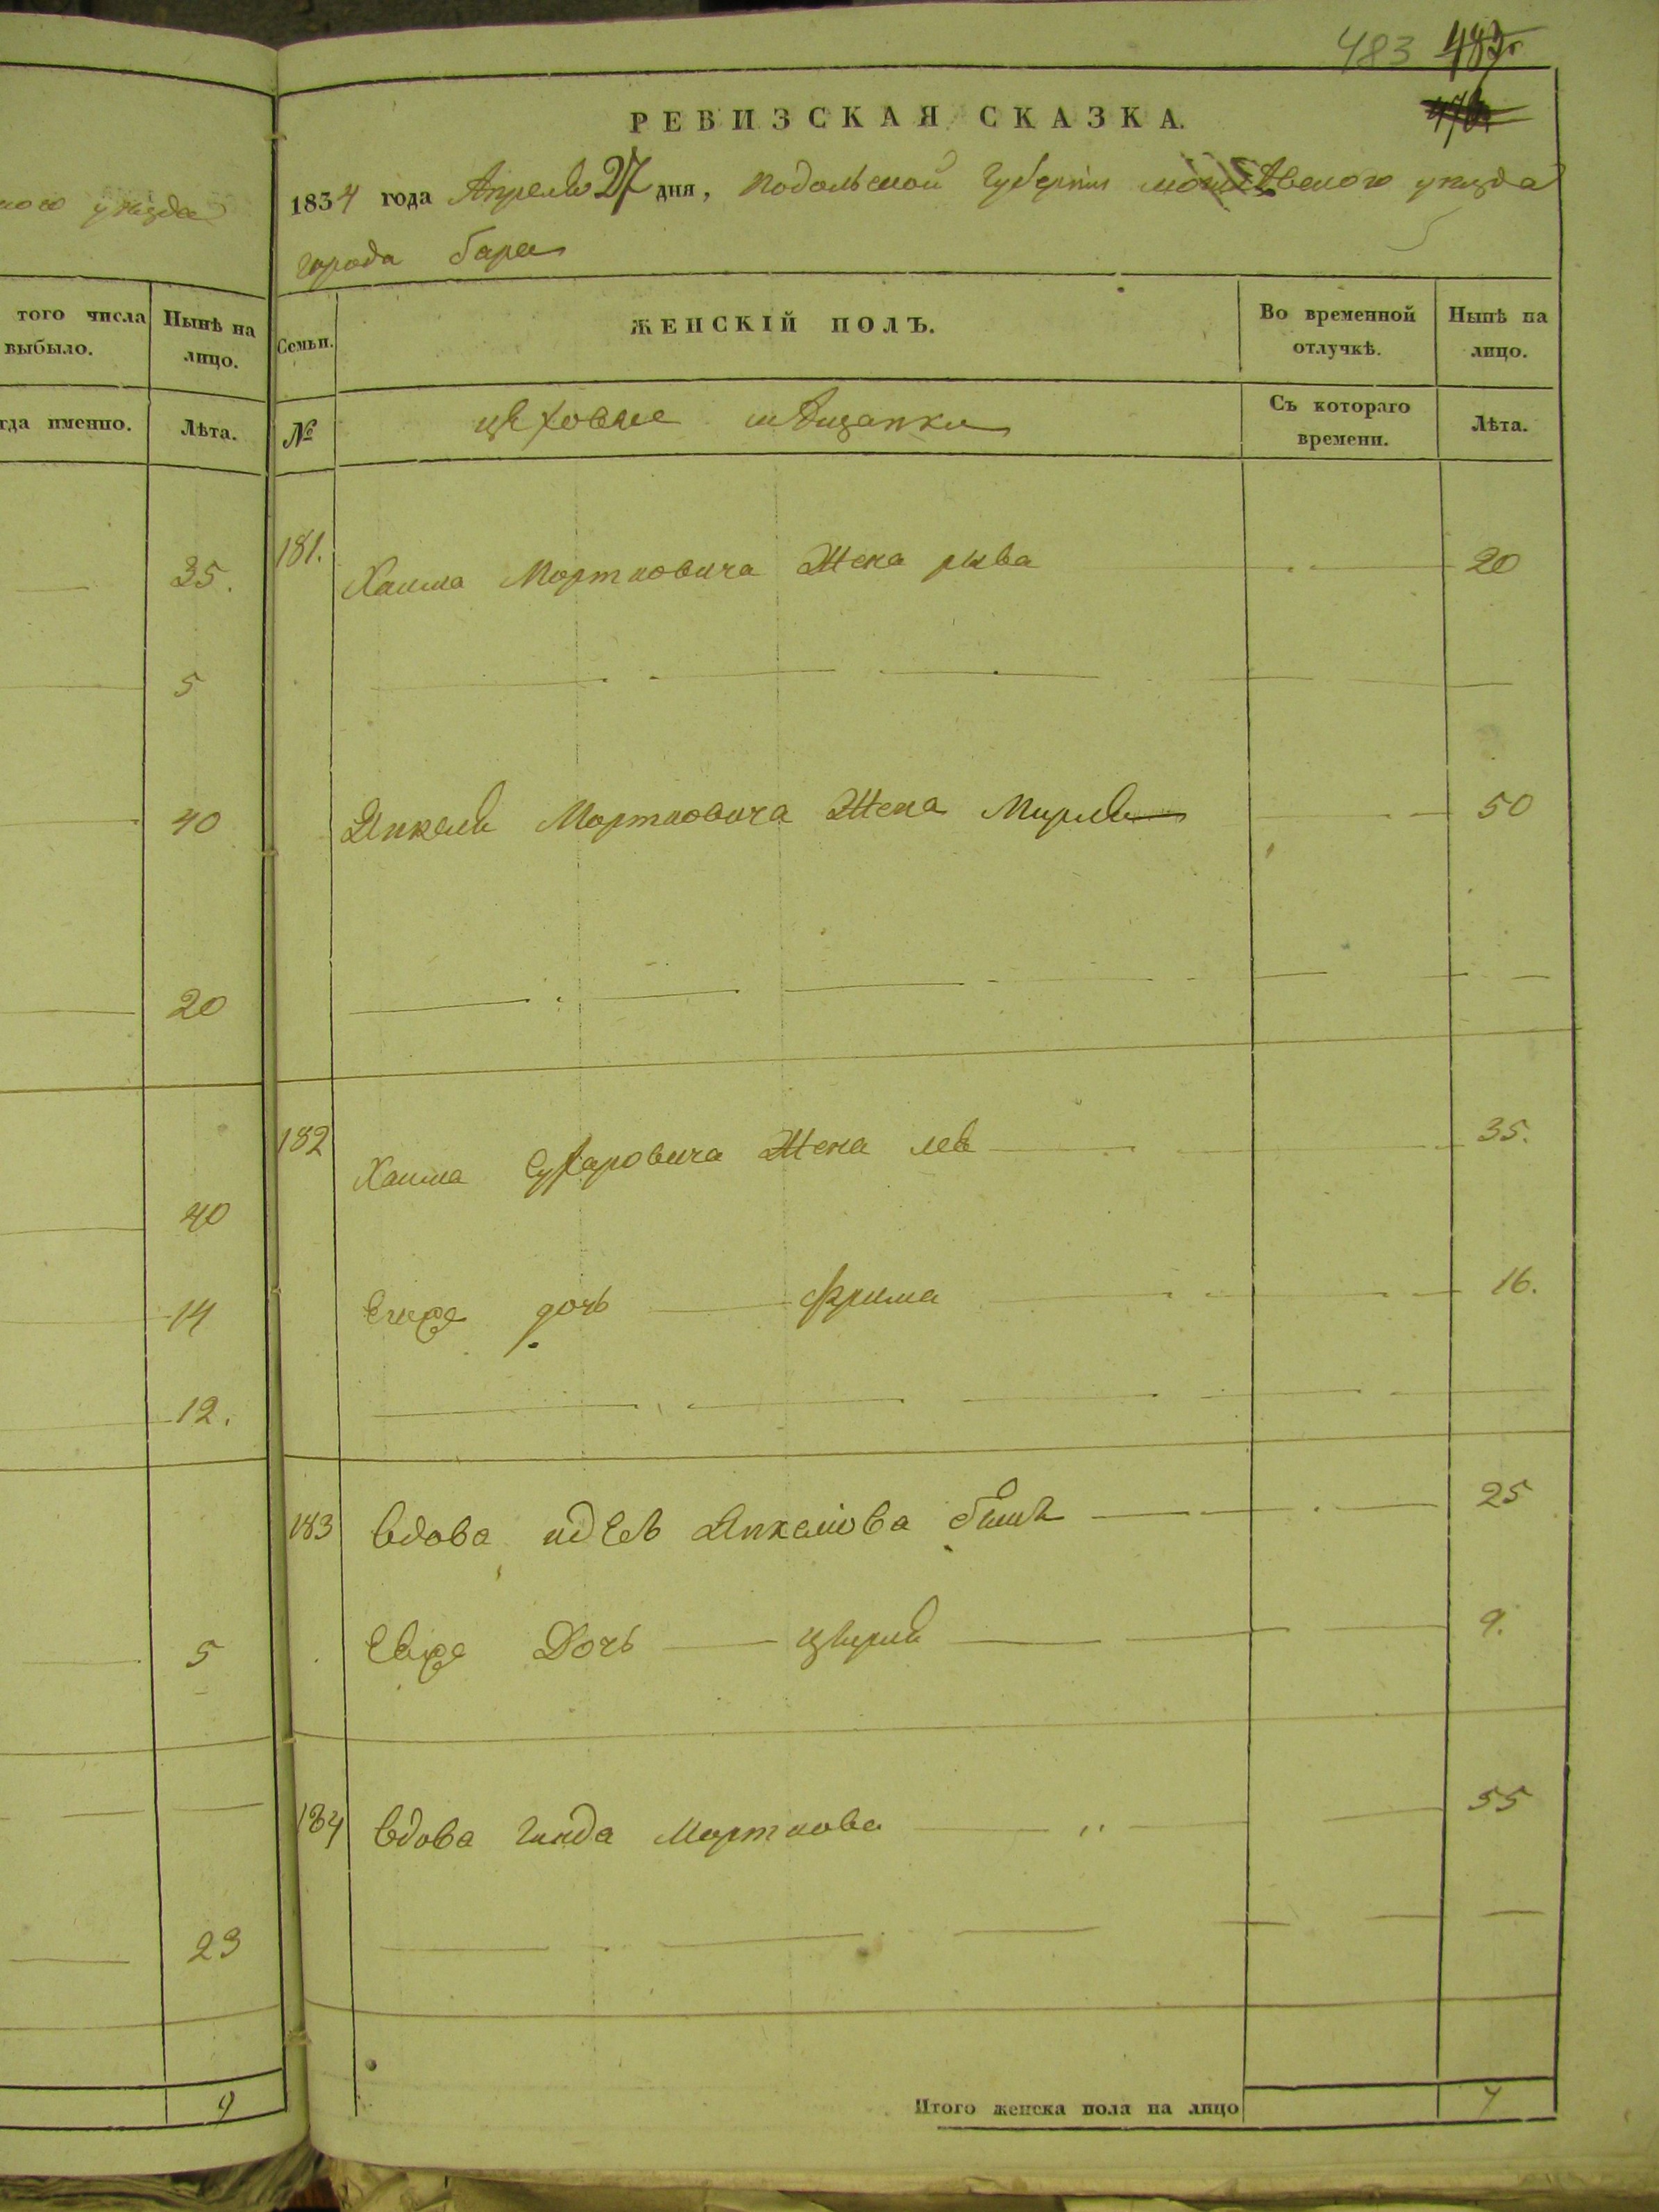 483
РЕВИЗСКАЯ СКАЗКА.
1834 года Апреля 27 дня, Подольской Губернии уезда
города бара
того числа выбыло.
Нынѣ на лицо.
Семьи.
ЖЕНСКІЙ ПОЛЪ.
Во временной отлучкѣ.
Нынѣ на лицо.
гда именно.
Лѣта.
№
цеховые мѣщанки
Съ котораго времени.
Лѣта.
35.
181.
Хаима Мортковича Жена рыва
20
5
40
Янкеля Мортковича Жена Мирля
50
20
182
Хаима Сухаровича Жена лея
35.
40
14
Егоже дочь Фрима
16.
12.
183
вдова Янкелiова
25
5
Еяже Дочь
9.
184
вдова ГиндаМорткова
55
23
9
Итого женска пола на лицо
7